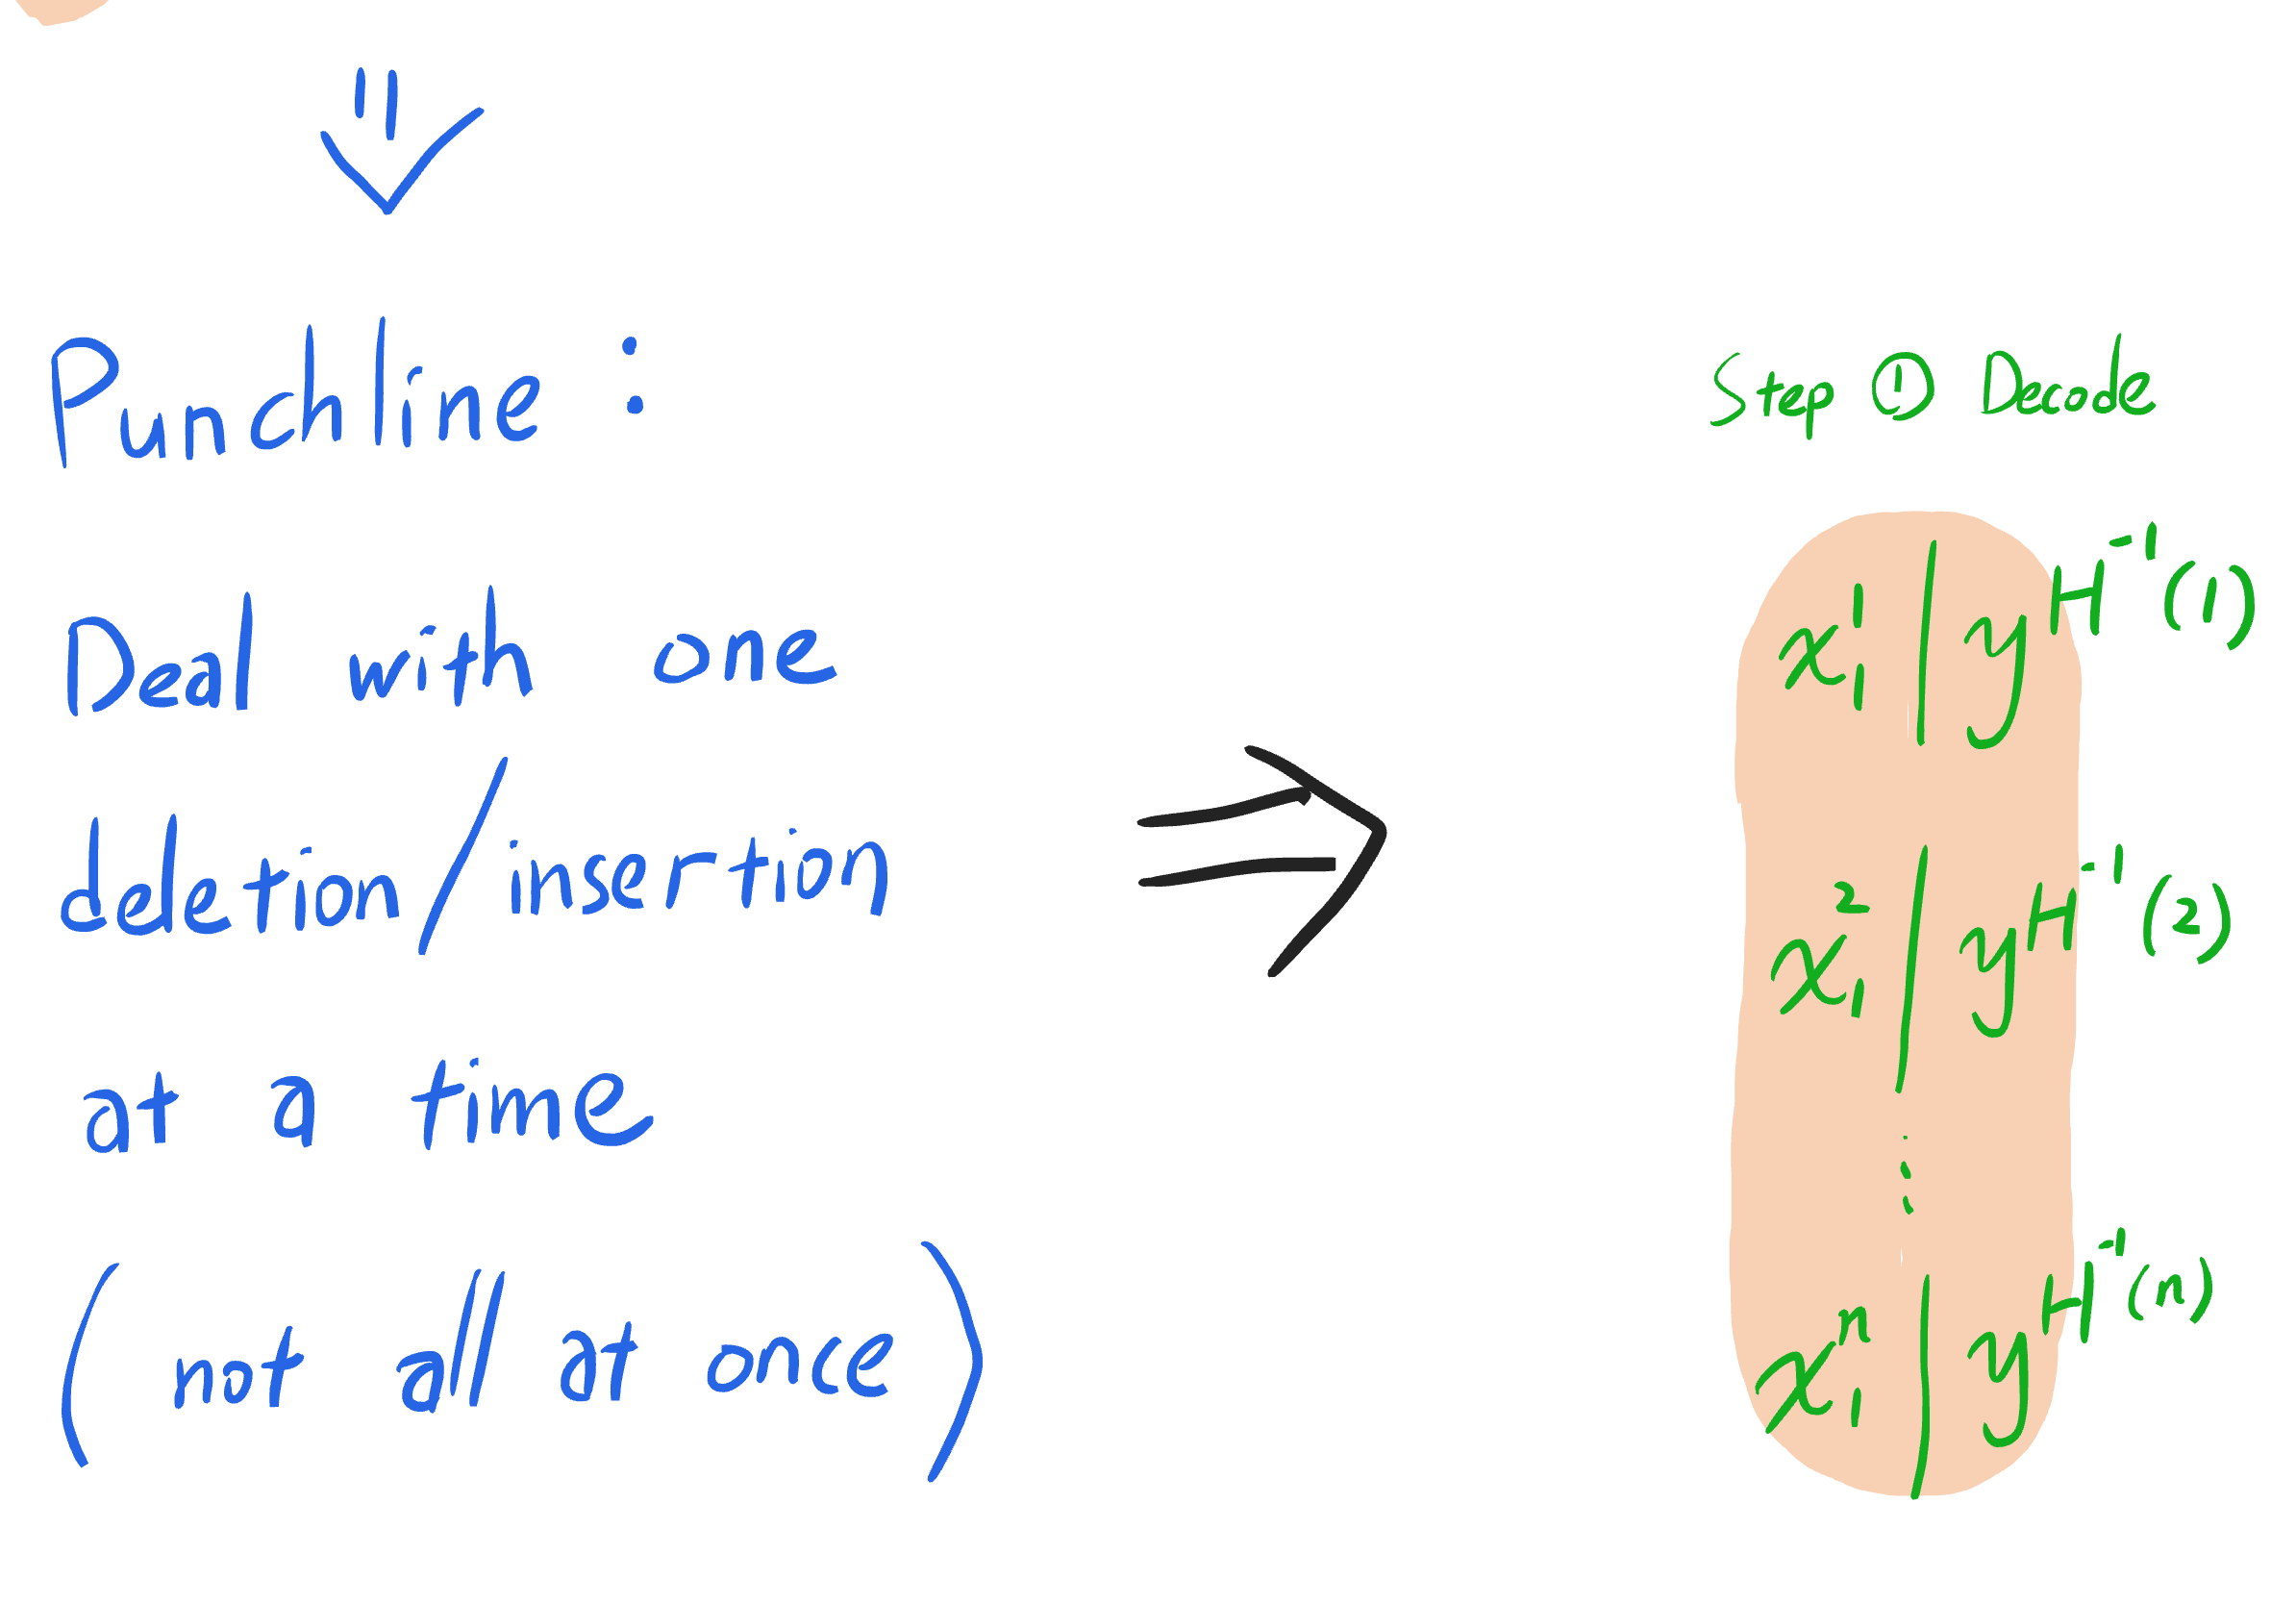 Punchline :
Deal with one
deletion/insertion
at a time
(not all at once)
Step ① Decode
x₁¹ | y^H⁻¹(1)
x₁² | y^H⁻¹(2)
⋮
x₁ⁿ | y^H⁻¹(n)